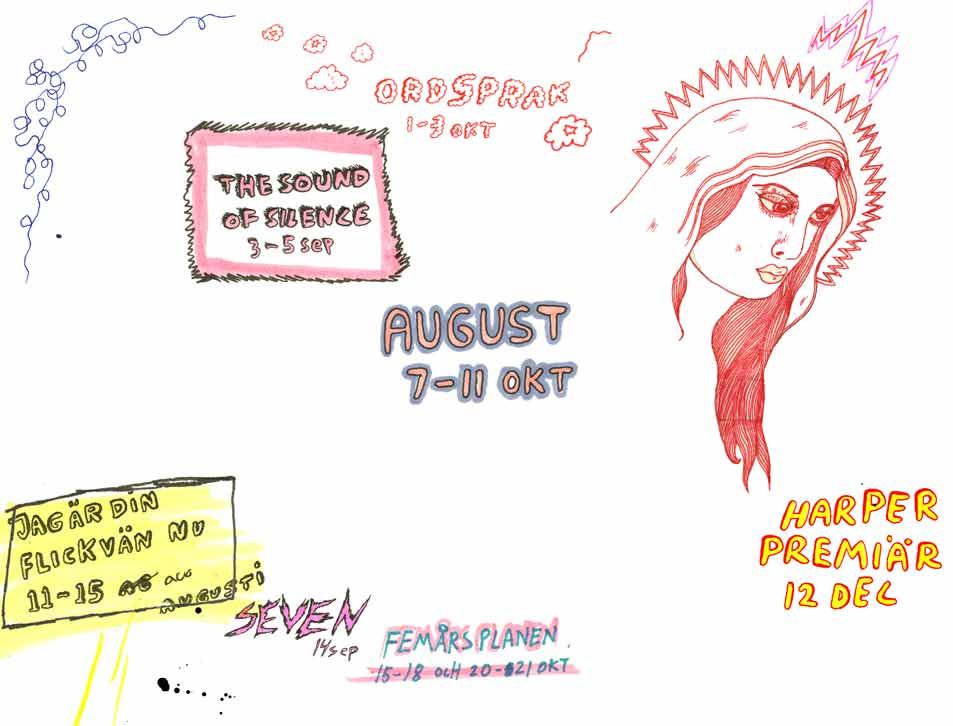 ORDSPRAK
1-3 OKT
THE SOUND
OF SILENCE
3-5 sep
AUGUST
7-11 OKT
JAG ÄR DiN
FLICKVÄN NU
11-15 AUG
AUGUSTi
SEVEN
14 sep
FEMÅRSPLANEN.
15-18 OCH 20-21 OKT
HARPER
PREMIÄR
12 DEC